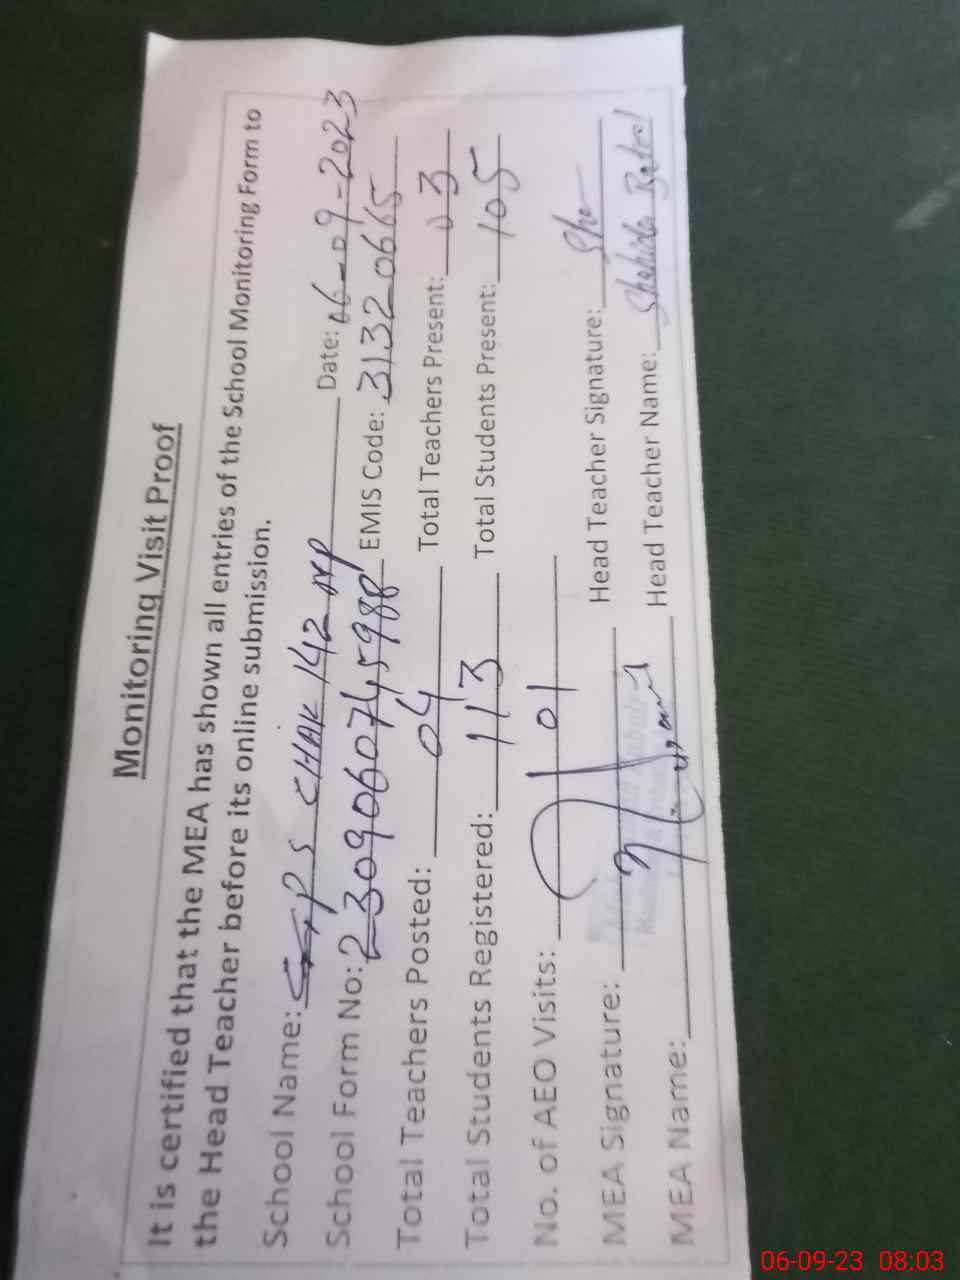 Monitoring Visit Proof
It is certified that the MEA has shown all entries of the School Monitoring Form to
the Head Teacher before its online submission.
School Name: GPS CHAK 142 MP Date: 06-09-2023
School Form No: 2309060745988 EMIS Code: 31320665
Total Teachers Posted: 04 Total Teachers Present: 03
Total Students Registered: 113 Total Students Present: 105
No. of AEO Visits: 01
MEA Signature: Head Teacher Signature: Sha
MEA Name: Head Teacher Name: Shahida Batool
06-09-23 08:03